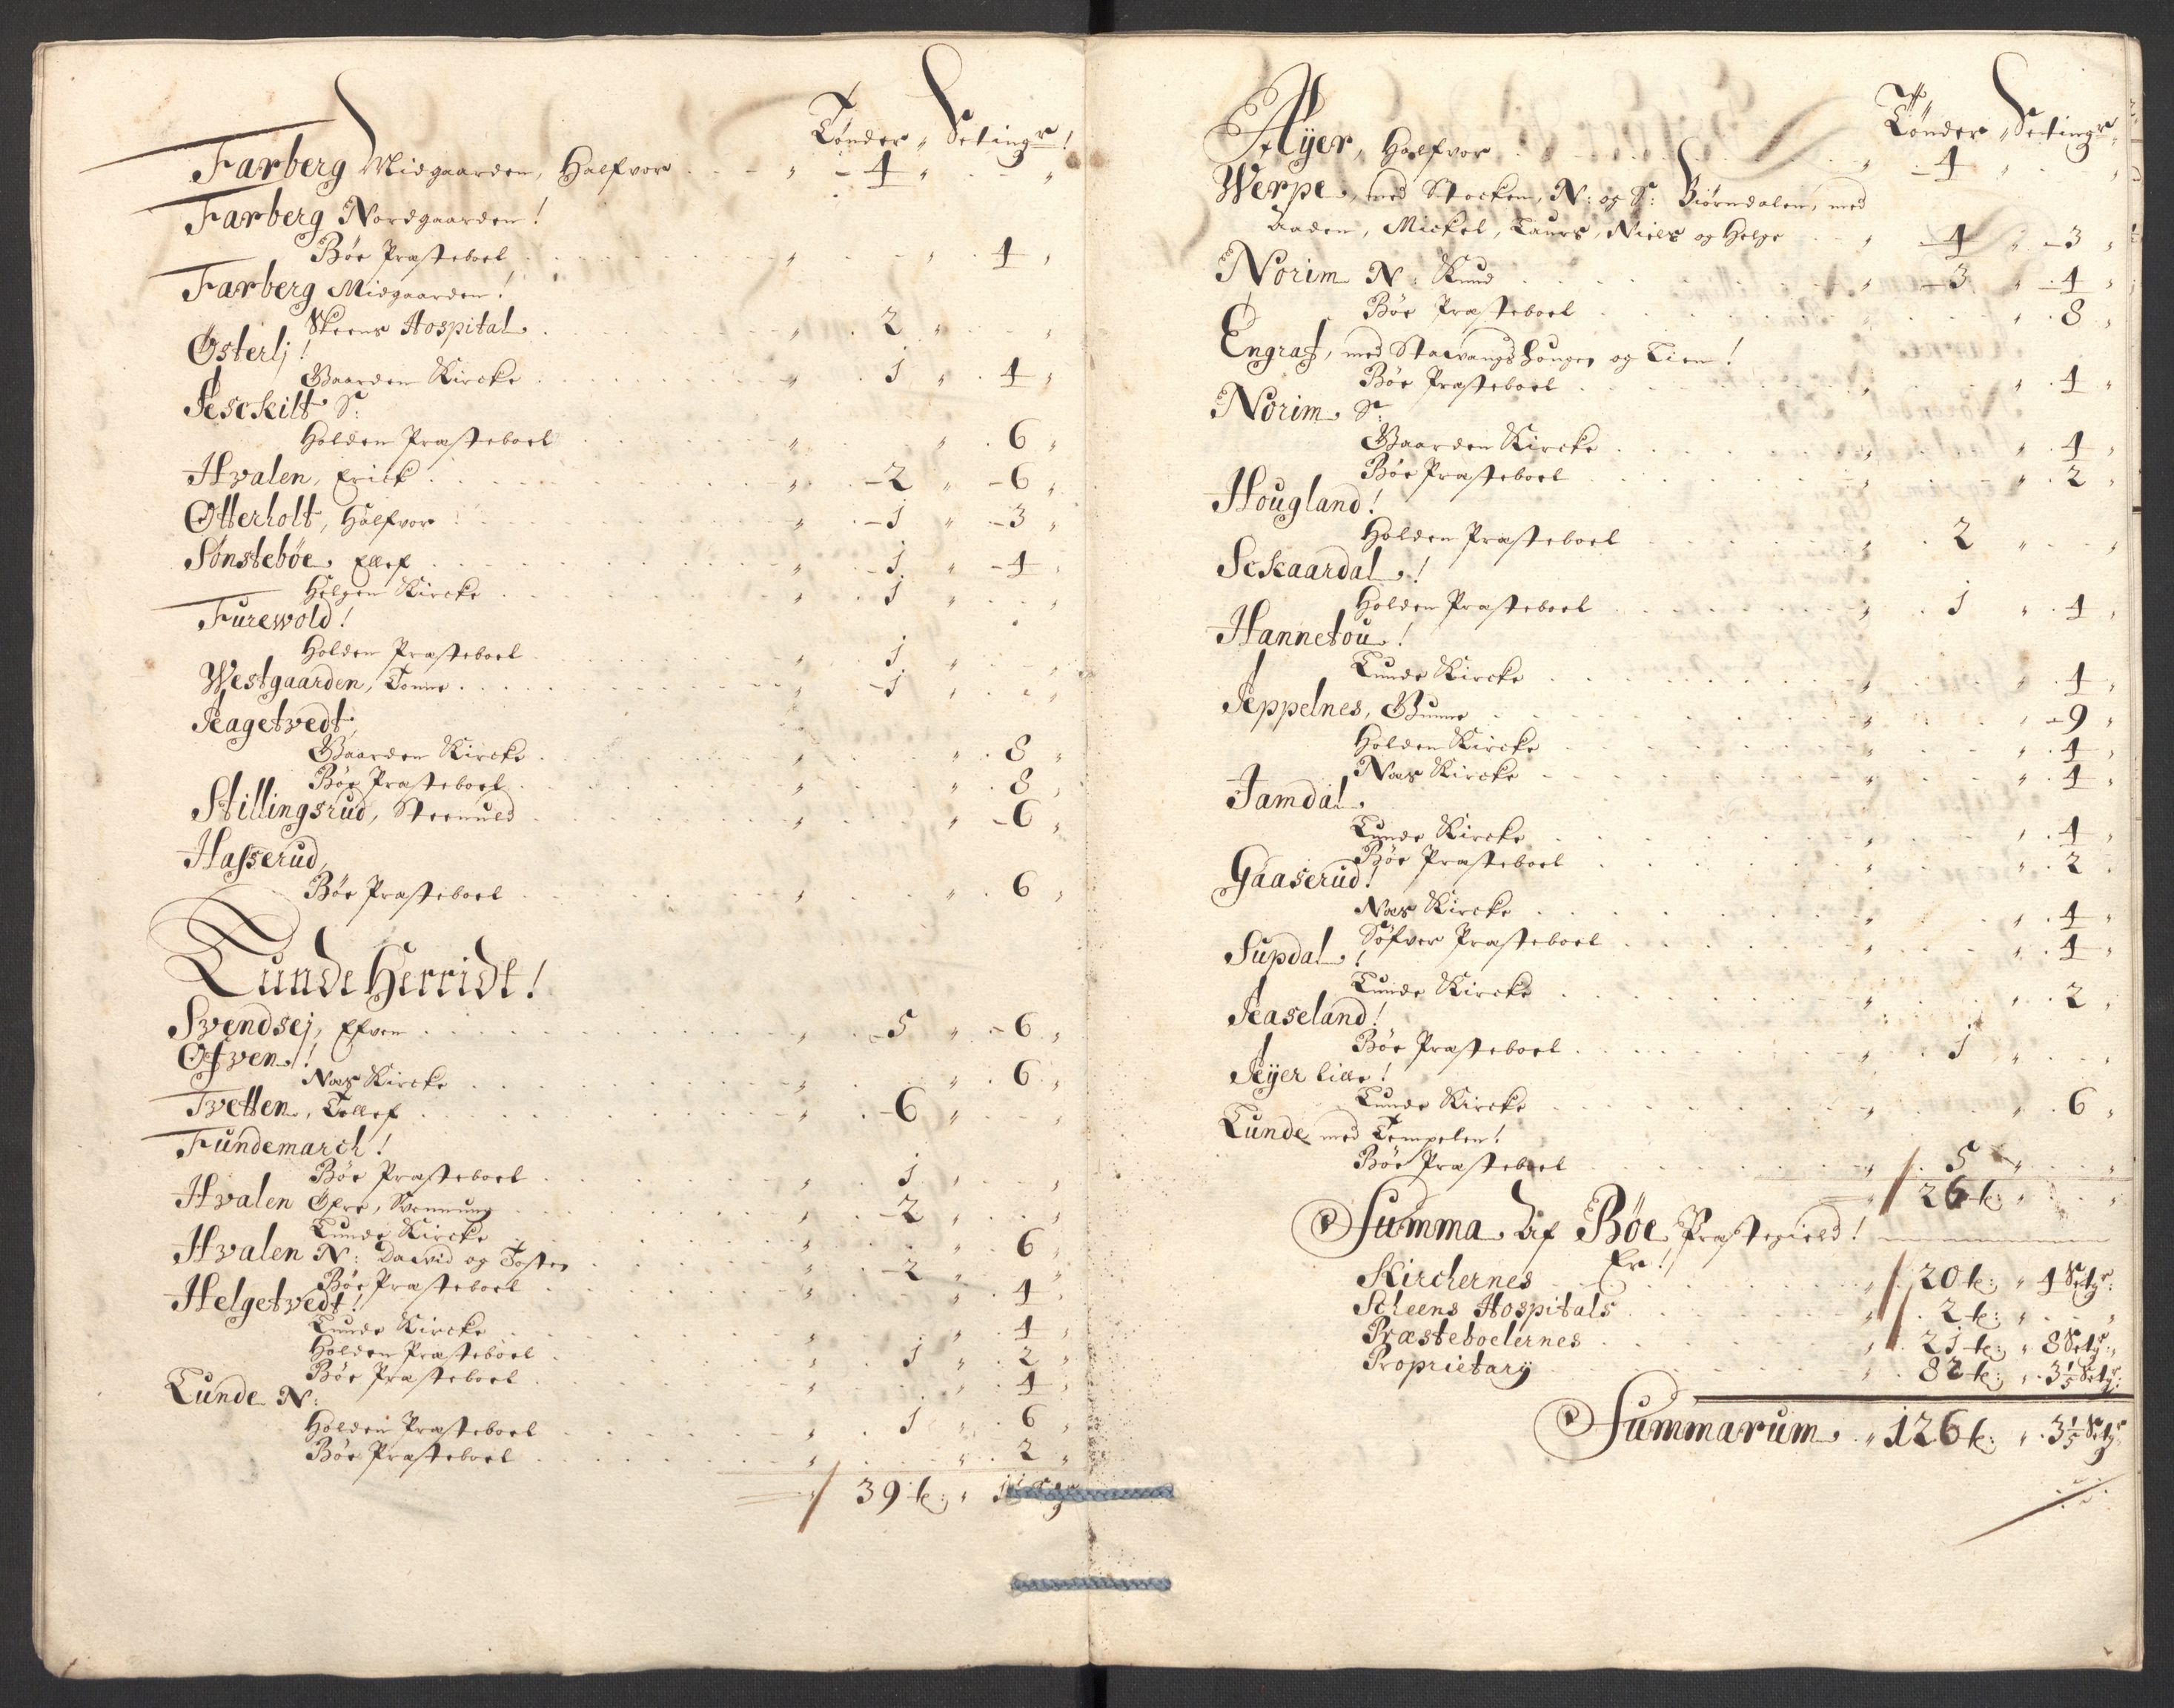 Tønder „ Setingr!
Farberg Midgaarden, Halfvor „ - 4 „ „
Farberg Nordgaarden!
Bøe Præsteboel „ „ 4 „
Farberg Midgaarden!
Skeens Hospital „ 2 „ „
Østerlj!
Gaarden Kircke „ 1 „ 4 „
Holden Præsteboel „ „ 6 „
Hvalen, Erick „ - 2 „ - 6 „
Otterholt, Halfvor „ - 1 „ - 3 „
Sønstebøe, Ellef „ - 1 „ - 4 „
Helgen Kircke „ 1 „
Furewold!
Holden Præsteboel „ 1 „
Westgaarden, Tonne „ - 1 „ „
Gaarden Kircke „ „ 8 „
Bøe Præsteboel „ „ 8 „
Stillingsrud, Steenuld „ „ - 6 „
Hasserud,
Bøe Præsteboel „ „ 6 „
Lunde Herridt!
Svendsej, Efven „ - 5 „ - 6 „
Ofven!
Næs Kircke „ „ 6 „
Tvetten, Tollef „ - 6 „ „
Fundemarch!
Bøe Præsteboel „ 1 „ „
Hvalen Øfre, Svennung „ - 2 „ „
Lunde Kircke „ „ 6 „
Hvalen N: David og Tosten „ - 2 „ „
Bøe Præsteboel „ „ 4 „
Helgetvedt!
Lunde Kircke „ „ 4 „
Holden Præsteboel „ 1 „ 2 „
Bøe Præsteboel „ „ 4 „
Lunde N:
Holden Præsteboel „ 1 „ 6 „
Bøe Præsteboel „ „ 2 „
„ 39 t: „
Tønder „ Setingr „
Aÿer, Halfvor „ - 4 „ „
Werpe, med Stocken, N: og S: Biørndalen, med
Aaden, Mickel, Laurs, Niels og Helge „ - 4 „ - 3 „
Norim N: Knud „ - 3 „ - 4 „
Bøe Præsteboel „ 8 „
Engraf, med Stavangs Hougen og Lien!
Bøe Præsteboel „ 4 „
Norim S:
Gaarden Kircke „ „ 4 „
Bøe Præsteboel „ „ 2 „
Hougland!
Holden Præsteboel „ 2 „ „
Sckaardal!
Holden Præsteboel „ 1 „ 4 „
Hannetou!
Lunde Kircke „ „ 4 „
Jeppelnes, Gunne „ „ - 9 „
Holden Kircke „ „ 4 „
Næs Kircke „ „ 4 „
Jamdal.
Lunde Kircke „ „ 4 „
Bøe Præsteboel „ „ 2 „
Gaaserud!
Næs Kircke „ „ 4 „
Søfver Præsteboel „ „ 4 „
Supdal!
Lunde Kircke „ „ 2 „
Bøe Præsteboel „ 1 „
Lunde Kircke „ „ 6 „
Lunde med Tempelen!
Bøe Præsteboel „ 5 „ „
„ 26 t: „ „
Summa Af Bøe Præstegield!
Er!
Kirchernes „ 20 t: „ 4 Setgr:
Scheens Hospitals „ 2 t: „ „
Præsteboelernes „ 21 t: „ 8 Setgr: „
Proprietarÿ „ 82 t: „ 3 1/5 Setgr:
Summarum „ 126 t: „ 3 1/5 Setgr